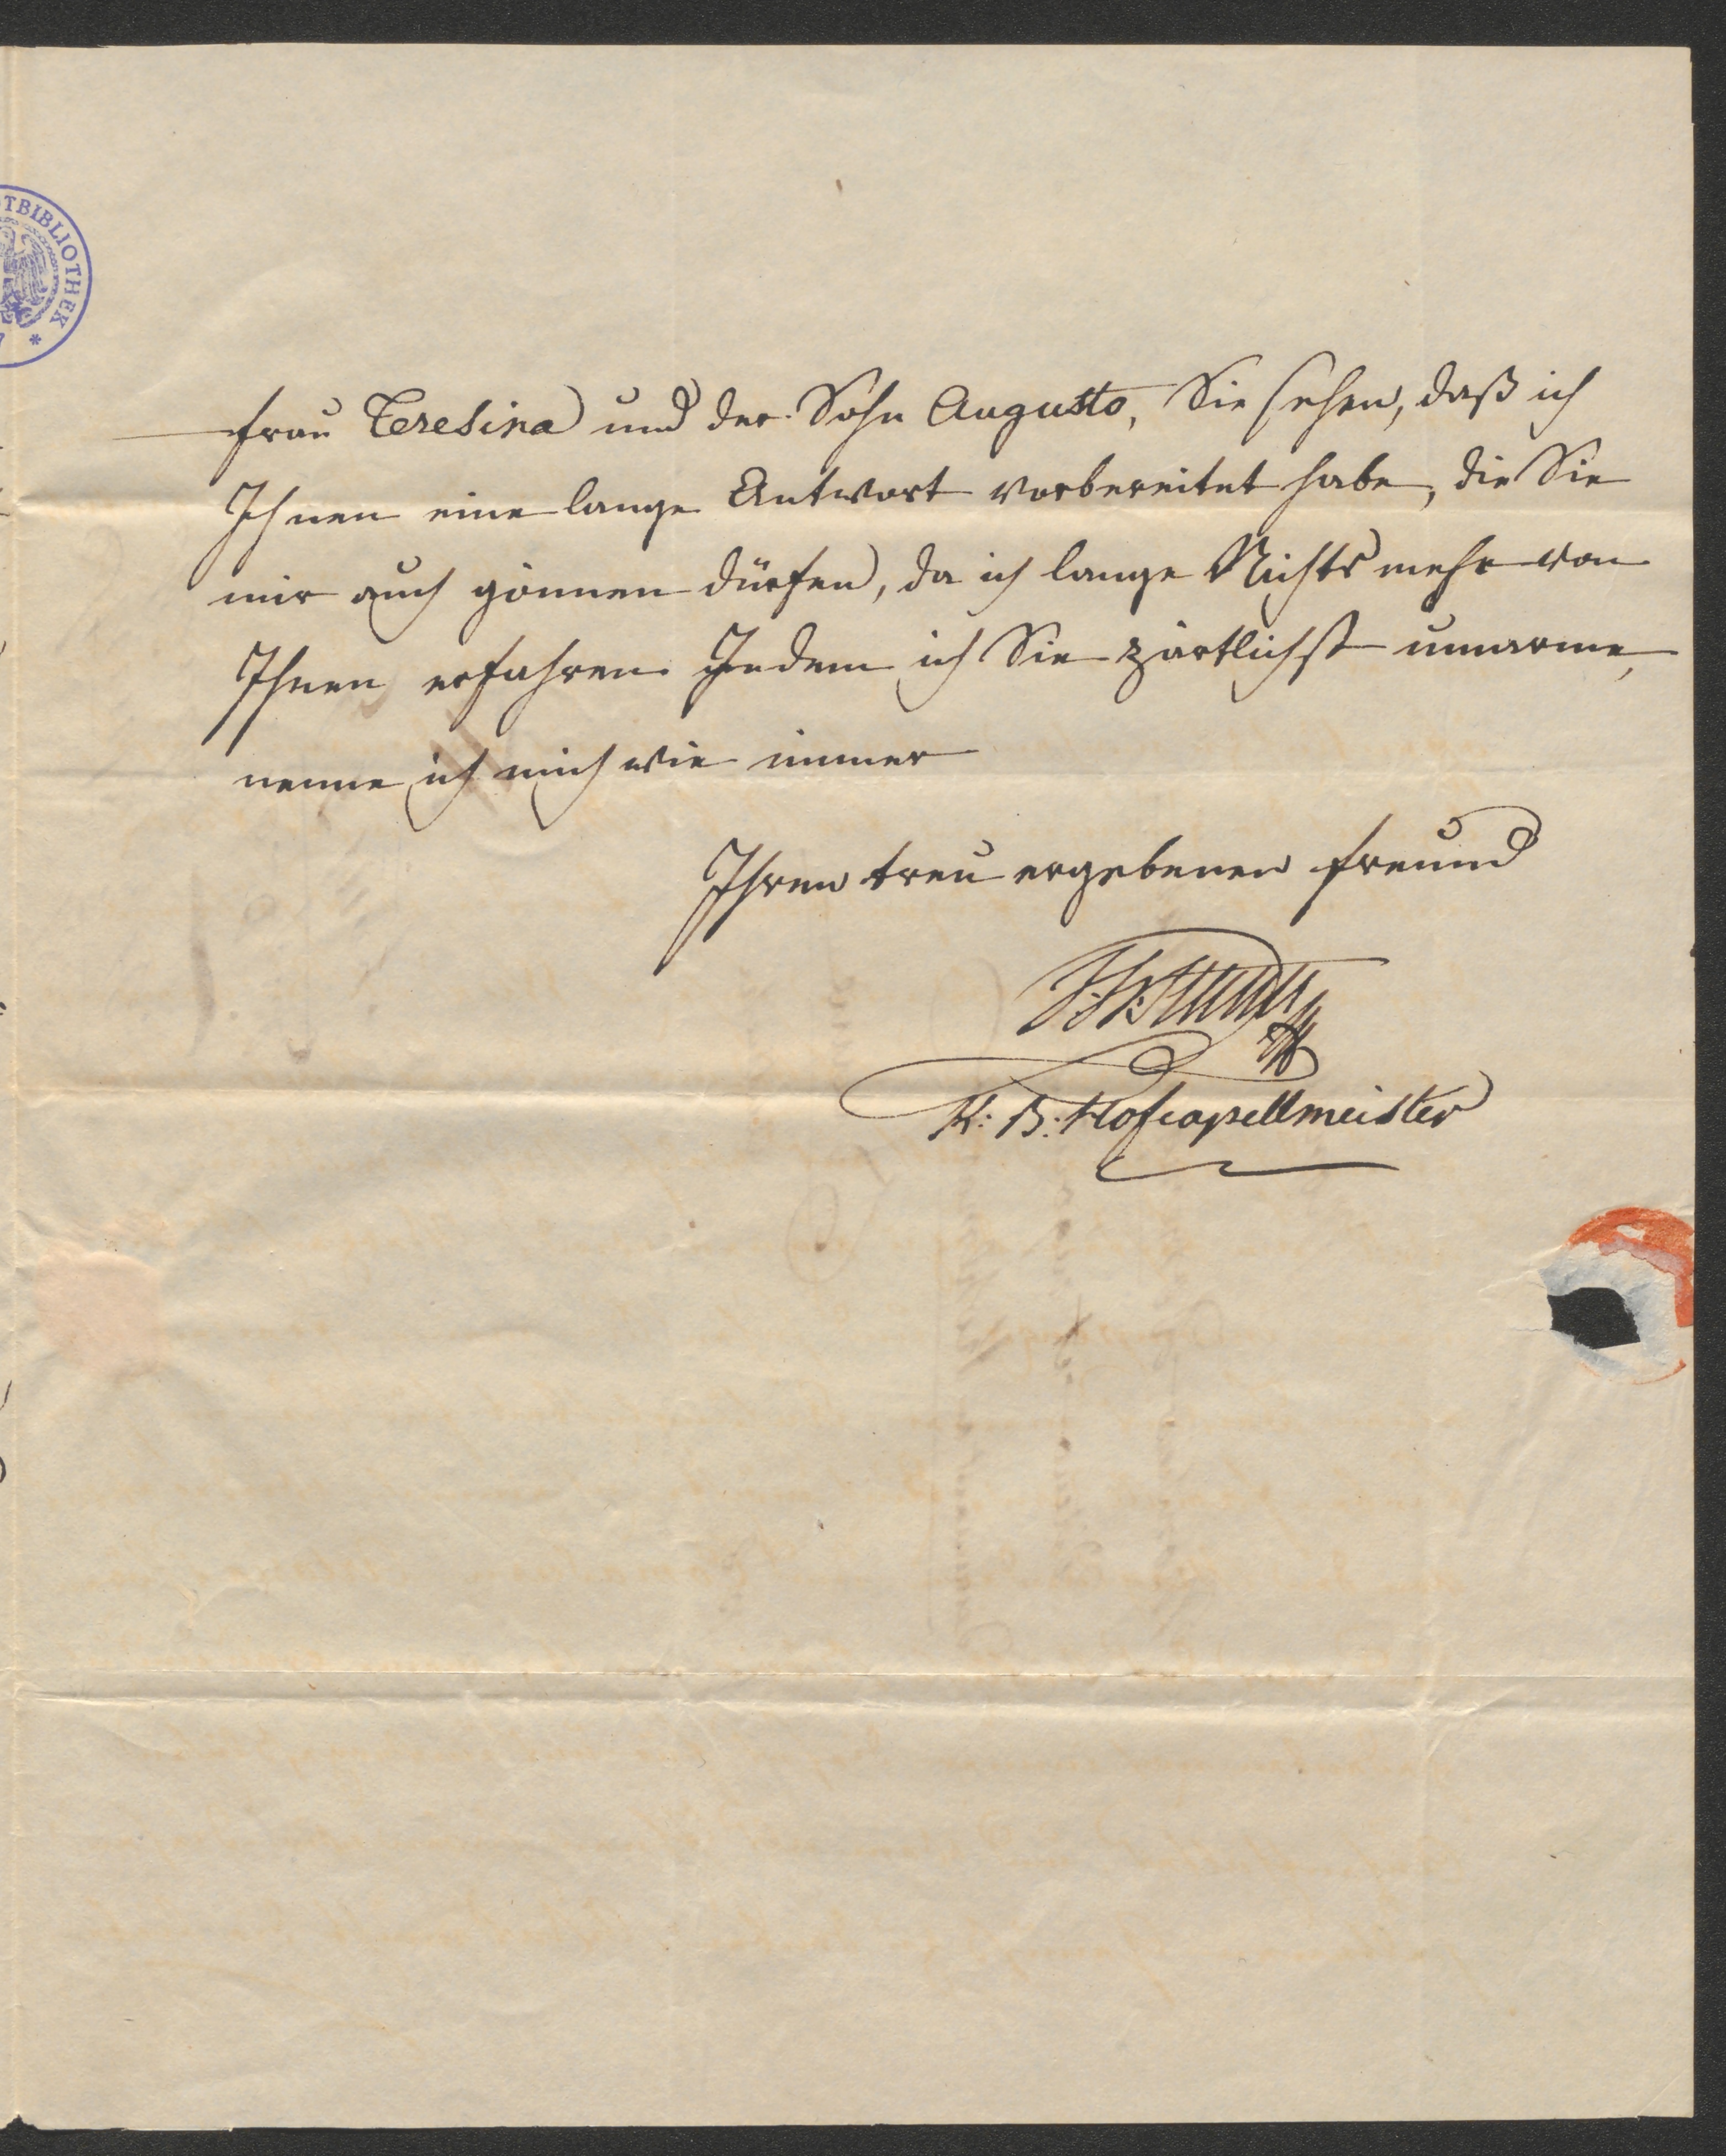 TBIBLIOTHEK
Frau Teresina und der Sohn Augusto, Sie sehen, daß ich
Ihnen eine lange Antwort vorbereitet habe, die Sie
mir auch gönnen dürfen, da ich lange Nichts mehr von
Ihnen erfahren. Indem ich Sie zärtlichst umarme,
nenne ich mich wie immer
Ihren treu ergebenen Freund
J. H. Stuntz
K: B: Hofcapellmeister